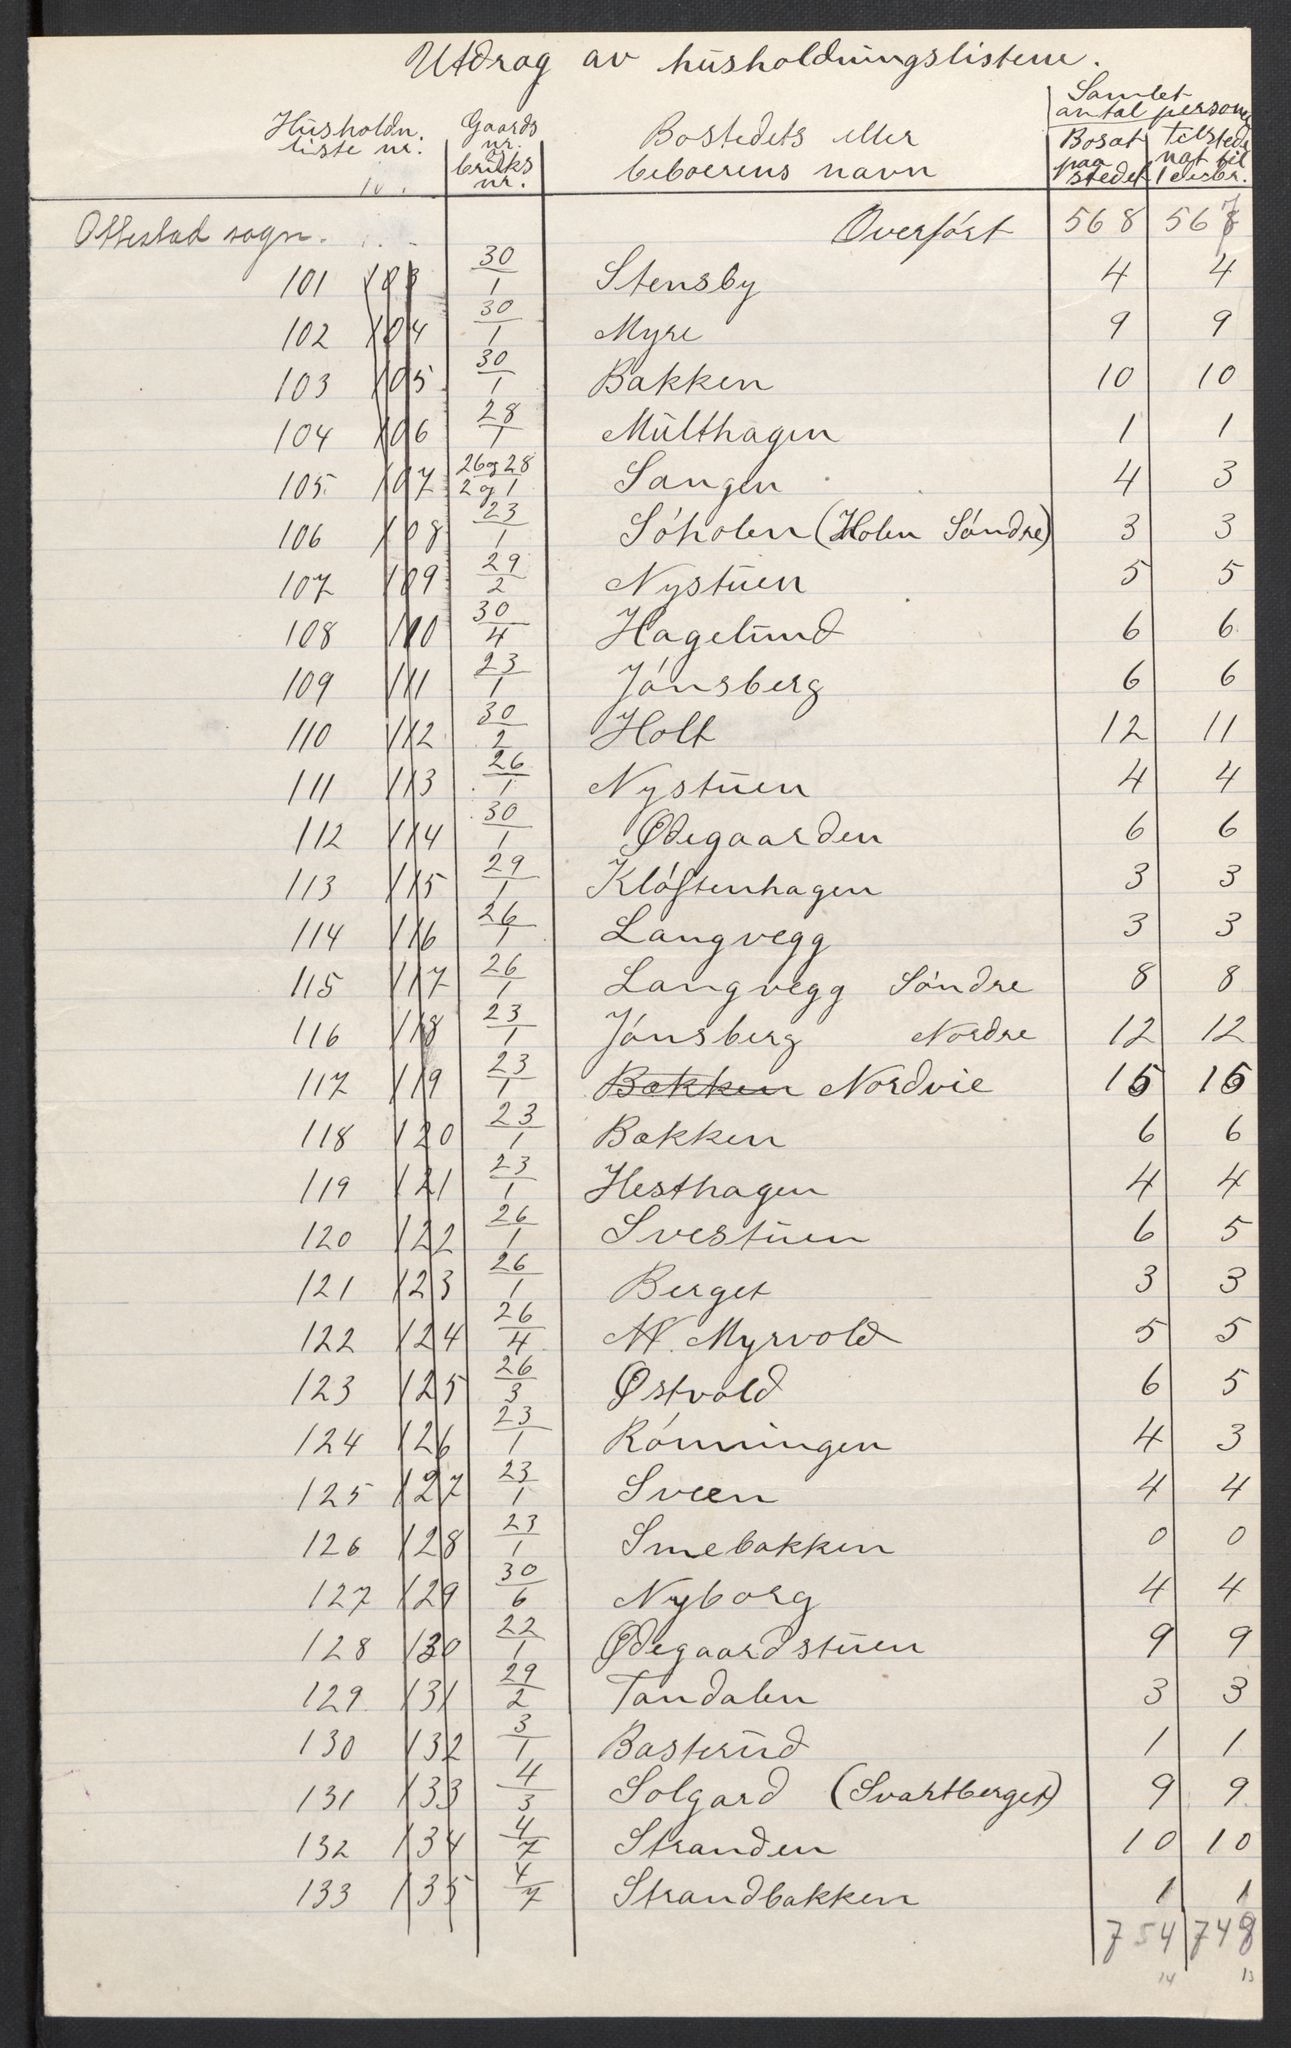 Utdrag av husholdningslistene.
Husholdn. liste nr. | Gaards nr. og bruks nr. | Bostedets eller beboerens navn | Samlet antal personer | Bosat paa stedet | tilstede nat til 1 desbr.
Ottestad sogn. Overført 568 567
101 103 30/1 Stensby 4 4
102 104 30/1 Myre 9 9
103 105 30/1 Bakken 10 10
104 106 28/1 Multhagen 1 1
105. 107 26 og 28/2 og 1 Sangen 4 3
106 108 23/1 Søholen (Holen Søndre) 3 3
107 109 29/2 Nystuen 5 5
108 110 30/4 Hagelund 6 6
109 111 23/1 Jønsberg 6 6
110 112 30/2 Holt 12 11
111 113 26/1 Nystuen 4 4
112 114 30/1 Ødegaarden 6 6
113 115 29/1 Kløftenhagen 3 3
114 116 26/1 Langvegg 3 3
115 117 26/1 Langvegg Søndre 8 8
116 118 23/1 Jønsberg Nordre 12 12
117 119 23/1 Bakken Nordvie 15 15
118 120 23/1 Bakken 6 6
119 121 23/1 Hesthagen 4 4
120 122 26/1 Svestuen 6 5
121 123 26/1 Berget 3 3
122 124 26/4 N. Myrvold 5 5
123 125 26/3 Østvold 6 5
124 126 23/1 Rønningen 4 3
125 127 23/1 Sveen 4 4
126 128 23/1 Smebakken 0 0
127 129 30/6 Nyborg 4 4
128 130 22/1 Ødegaardstuen 9 9
129 131 29/2 Tandalen 3 3
130 132 3/1 Basterud 1 1
131 133 4/3 Solgard (Svartberget) 9 9
132 134 4/7 Stranden 10 10
133 135 4/7 Strandbakken 1 1
754 748
14 13